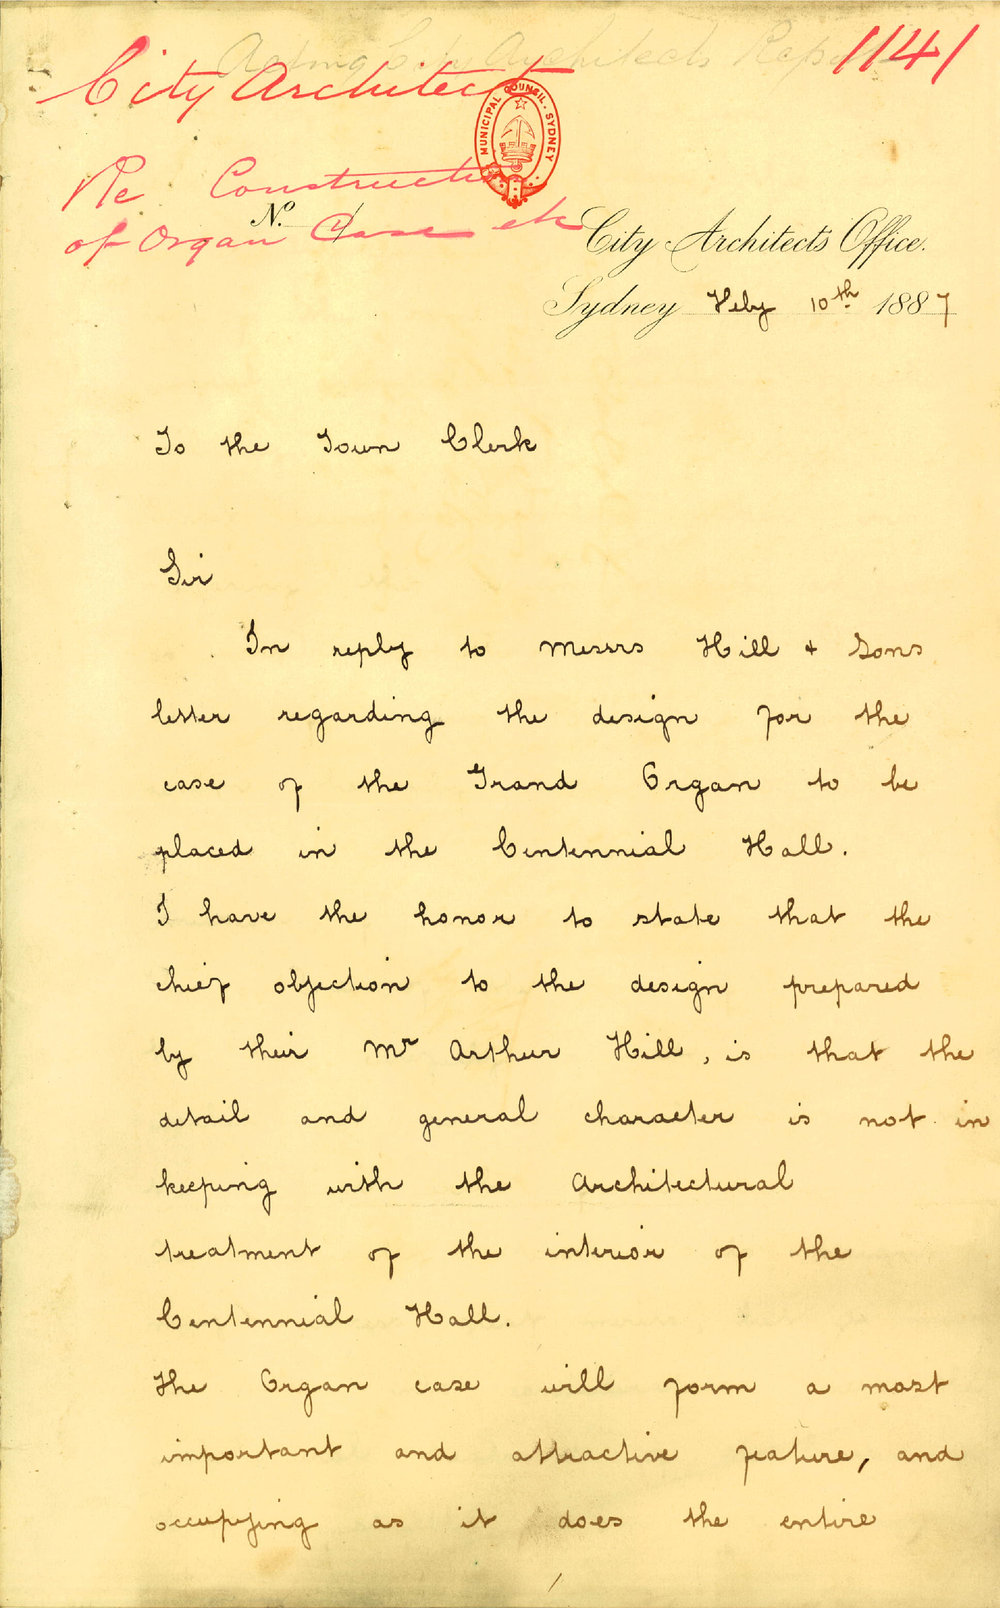 Acting City Architects Report
1141
City Architect
MUNICIPAL COUNCIL. SYDNEY
Re Construction
of Organ Case etc
No. 
City Architect's Office.
Sydney Feby 10th 1887
To the Town Clerk
Sir
In reply to Messrs Hill & Sons
letter regarding the design for the
case of the Grand Organ to be
placed in the Centennial Hall.
I have the honor to state that the
chief objection to the design prepared
by their Mr Arthur Hill, is that the
detail and general character is not in
keeping with the Architectural
treatment of the interior of the
Centennial Hall.
The Organ case will form a most
important and attractive feature, and
occupying as it does the entire